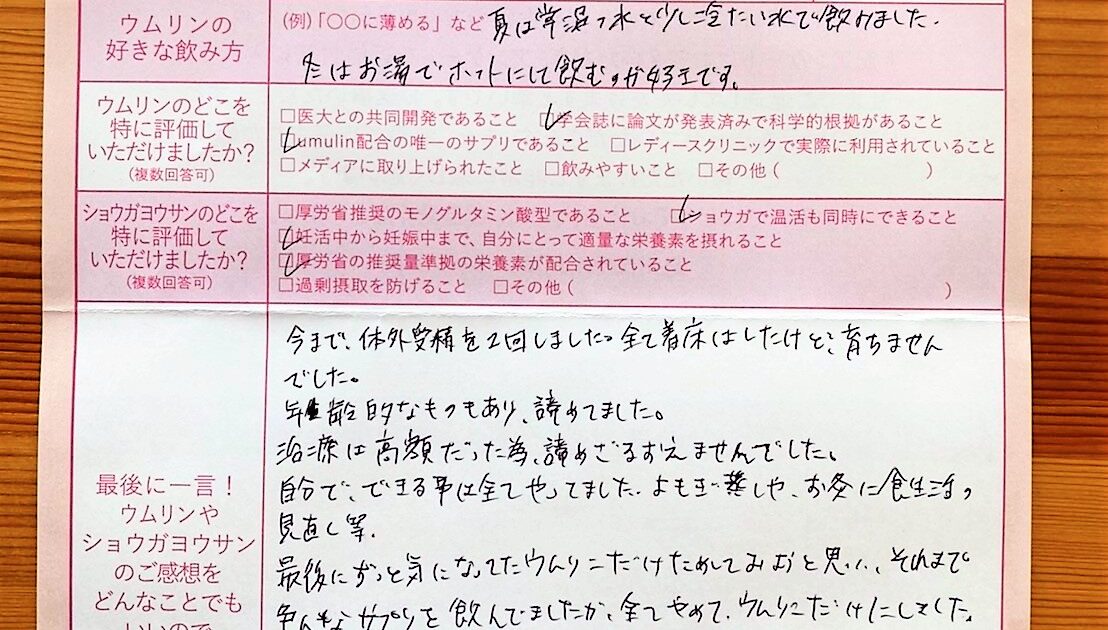 ウムリンの
好きな飲み方
(例)「〇〇に薄める」など 夏は常温の水と少し冷たい水で飲みました.
冬はお湯でホットにして飲むのが好きです。
ウムリンのどこを
特に評価して
いただけましたか?
(複数回答可)
□医大との共同開発であること ☑学会誌に論文が発表済みで科学的根拠があること
☑umulin配合の唯一のサプリであること □レディースクリニックで実際に利用されていること
□メディアに取り上げられたこと □飲みやすいこと □その他( )
ショウガヨウサンのどこを
特に評価して
いただけましたか?
(複数回答可)
□厚労省推奨のモノグルタミン酸型であること ☑ショウガで温活も同時にできること
☑妊活中から妊娠中まで、自分にとって適量な栄養素を摂れること
☑厚労省の推奨量準拠の栄養素が配合されていること
□過剰摂取を防げること □その他( )
最後に一言!
ウムリンや
ショウガヨウサン
のご感想を
どんなことでも
いいので
今まで、体外受精を2回しました。全て着床はしたけど、育ちません
でした。
年齢的なものもあり、諦めてました。
治療は高額だった為、諦めざるおえませんでした。
自分で、できる事は全てやってました. よもぎ蒸しや、お灸に食生活の
見直し等.
最後にずっと気になってたウムリンだけためしてみおと思い、それまで
色んなサプリを飲んでましたが、全てやめて、ウムリンだけにしました。